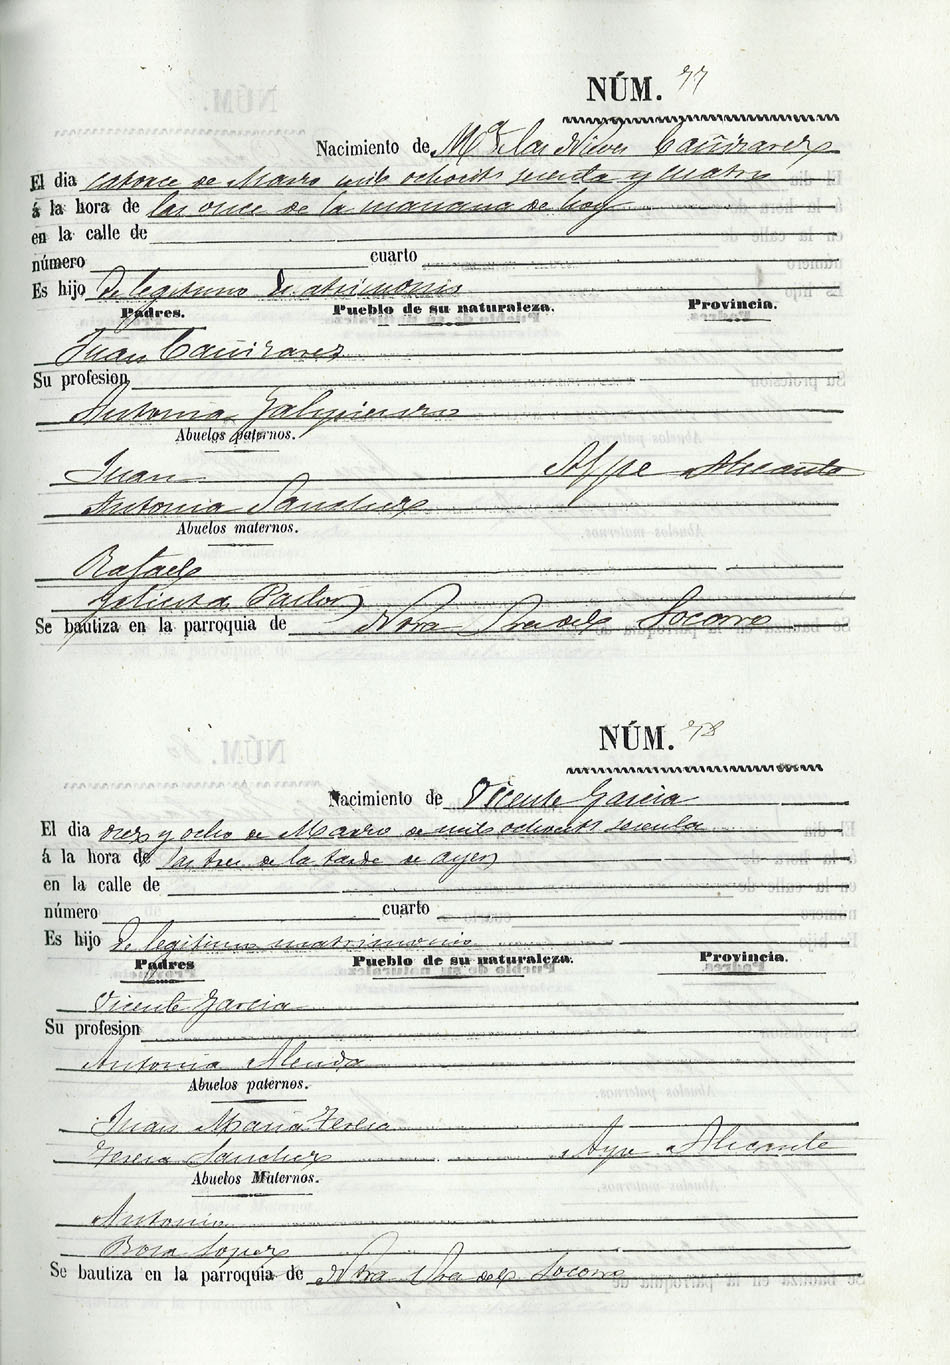 NÚM. 77
Nacimiento de Mª de las Nieves Cañizares
El dia catorce de Marzo mil ochocts sesenta y cuatro
á la hora de las once de la mañana de hoy
en la calle de
número cuarto
Es hijo de legitimo Matrimonio
Padres. Pueblo de su naturaleza. Provincia.
Juan Cañizares
Su profesion
Antonia
Abuelos paternos.
Juan Aspe Alicante
Antonia Sanchez
Abuelos maternos.
Rafael
Pastor
Se bautiza en la parroquia de Ntra Sra del Socorro
NÚM. 78
Nacimiento de Vicente Garcia
El dia diez y ocho de Marzo de mil ochocts sesenta
á la hora de las tres de la tarde de ayer
en la calle de
número cuarto
Es hijo de legitimo matrimonio
Padres Pueblo de su naturaleza. Provincia.
Vicente Garcia
Su profesion
Antonia Alenda
Abuelos paternos.
Juan Maria Teresa
Teresa Sanchez Aspe Alicante
Abuelos Maternos.
Antonio
Rosa Lopez
Se bautiza en la parroquia de Ntra Sra del Socorro